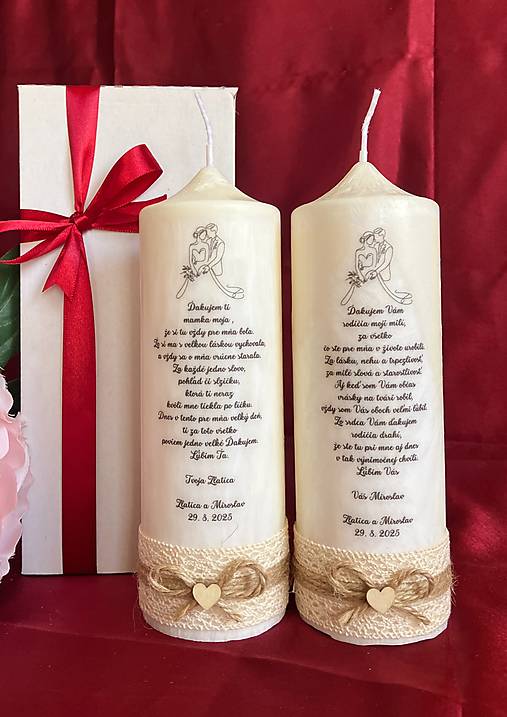 Ďakujem ti
mamka moja ,
že si tu vždy pre mňa bola.
Že si ma s veľkou láskou vychovala,
a vždy sa o mňa vrúcne starala.
Za každé jedno slovo,
pohľad či slzičku,
ktorá ti neraz
kvôli mne tiekla po líčku.
Dnes v tento pre mňa veľký deň,
ti za toto všetko
poviem jedno veľké Ďakujem.
Ľúbim Ťa.
Tvoja Zlatica
Zlatica a Miroslav
29. 8. 2025
Ďakujem Vám
rodičia moji milí,
za všetko
čo ste pre mňa v živote urobili.
Za lásku, nehu a trpezlivosť,
za milé slová a starostlivosť.
Aj keď som Vám občas
vrásky na tvári robil,
vždy som Vás oboch veľmi ľúbil.
Zo srdca Vám ďakujem
rodičia drahí,
že ste tu pri mne aj dnes
v tak výnimočnej chvíli.
Ľúbim Vás
Váš Miroslav
Zlatica a Miroslav
29. 8. 2025